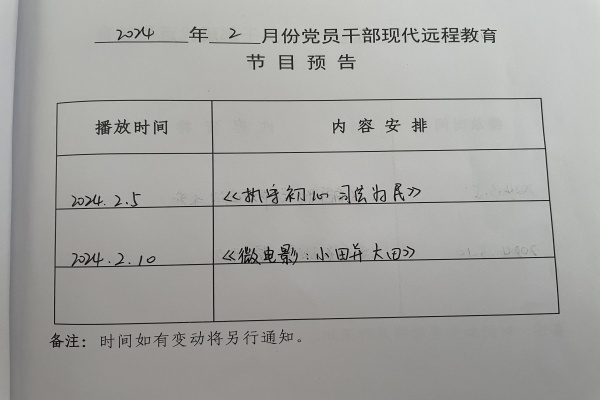 2024 年 2 月份党员干部现代远程教育
节目预告
播放时间 内容安排
2024.2.5 《执守初心 司法为民》
2024.2.10 《微电影:小田并大田》
备注:时间如有变动将另行通知。